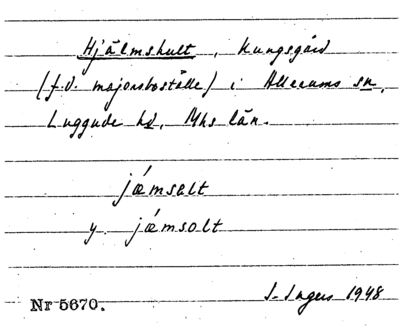 Hjälmshult, Kungsgård
(f.d. majorsboställe) i Allerums sn,
Luggude hd, Mhs län.
jǽmsalt
y. jǽmsolt
S. Ingers 1948
Nr 5670.